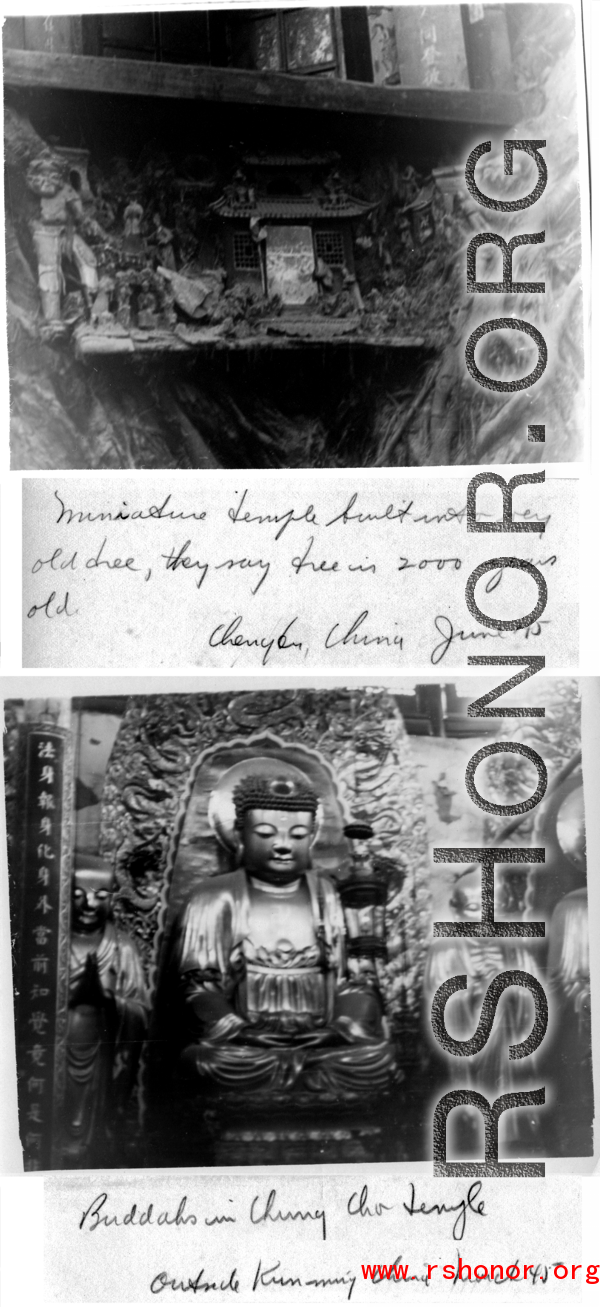 Miniature temple built into very
old tree, they say tree is 2000 years
old.
Chengtu, China June 45
法身報身化身外當前知覺竟何是何
Buddahs in Chung Cho temple
Outside Kunming China March 45
RSHONOR.ORG
www.rshonor.org